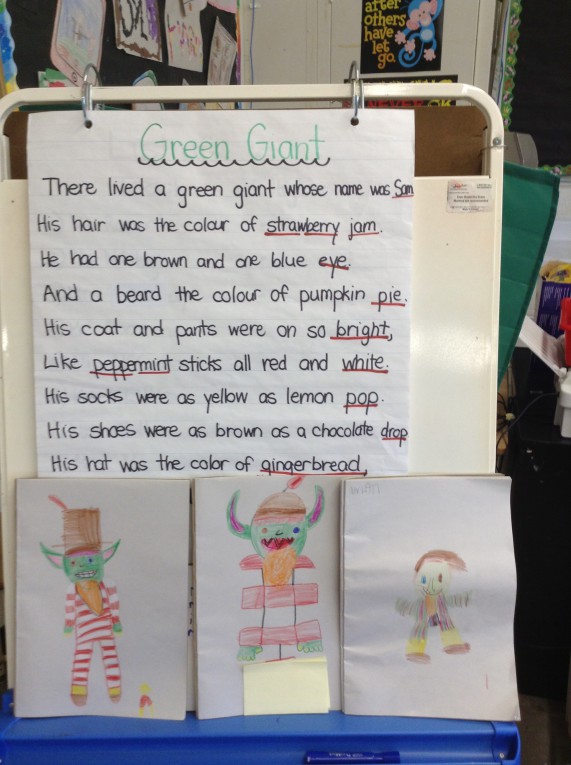 after
others
have
let
go.
NEVER OK
Green Giant
There lived a green giant whose name was Sam
His hair was the colour of strawberry jam.
He had one brown and one blue eye.
And a beard the colour of pumpkin pie.
His coat and pants were on so bright,
Like peppermint sticks all red and white.
His socks were as yellow as lemon pop.
His shoes were as brown as a chocolate drop
His hat was the color of gingerbread,